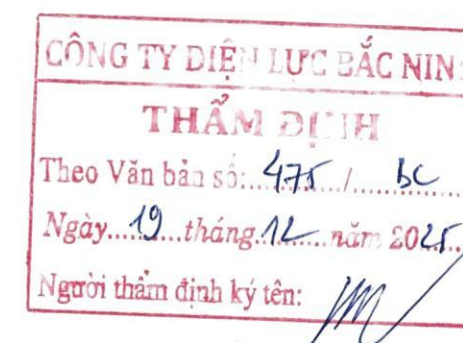 CÔNG TY ĐIỆN LỰC BẮC NIN
THẨM ĐỊNH
Theo Văn bản số: 475 / bc
Ngày 19 tháng 12 năm 2025
Người thẩm định ký tên: